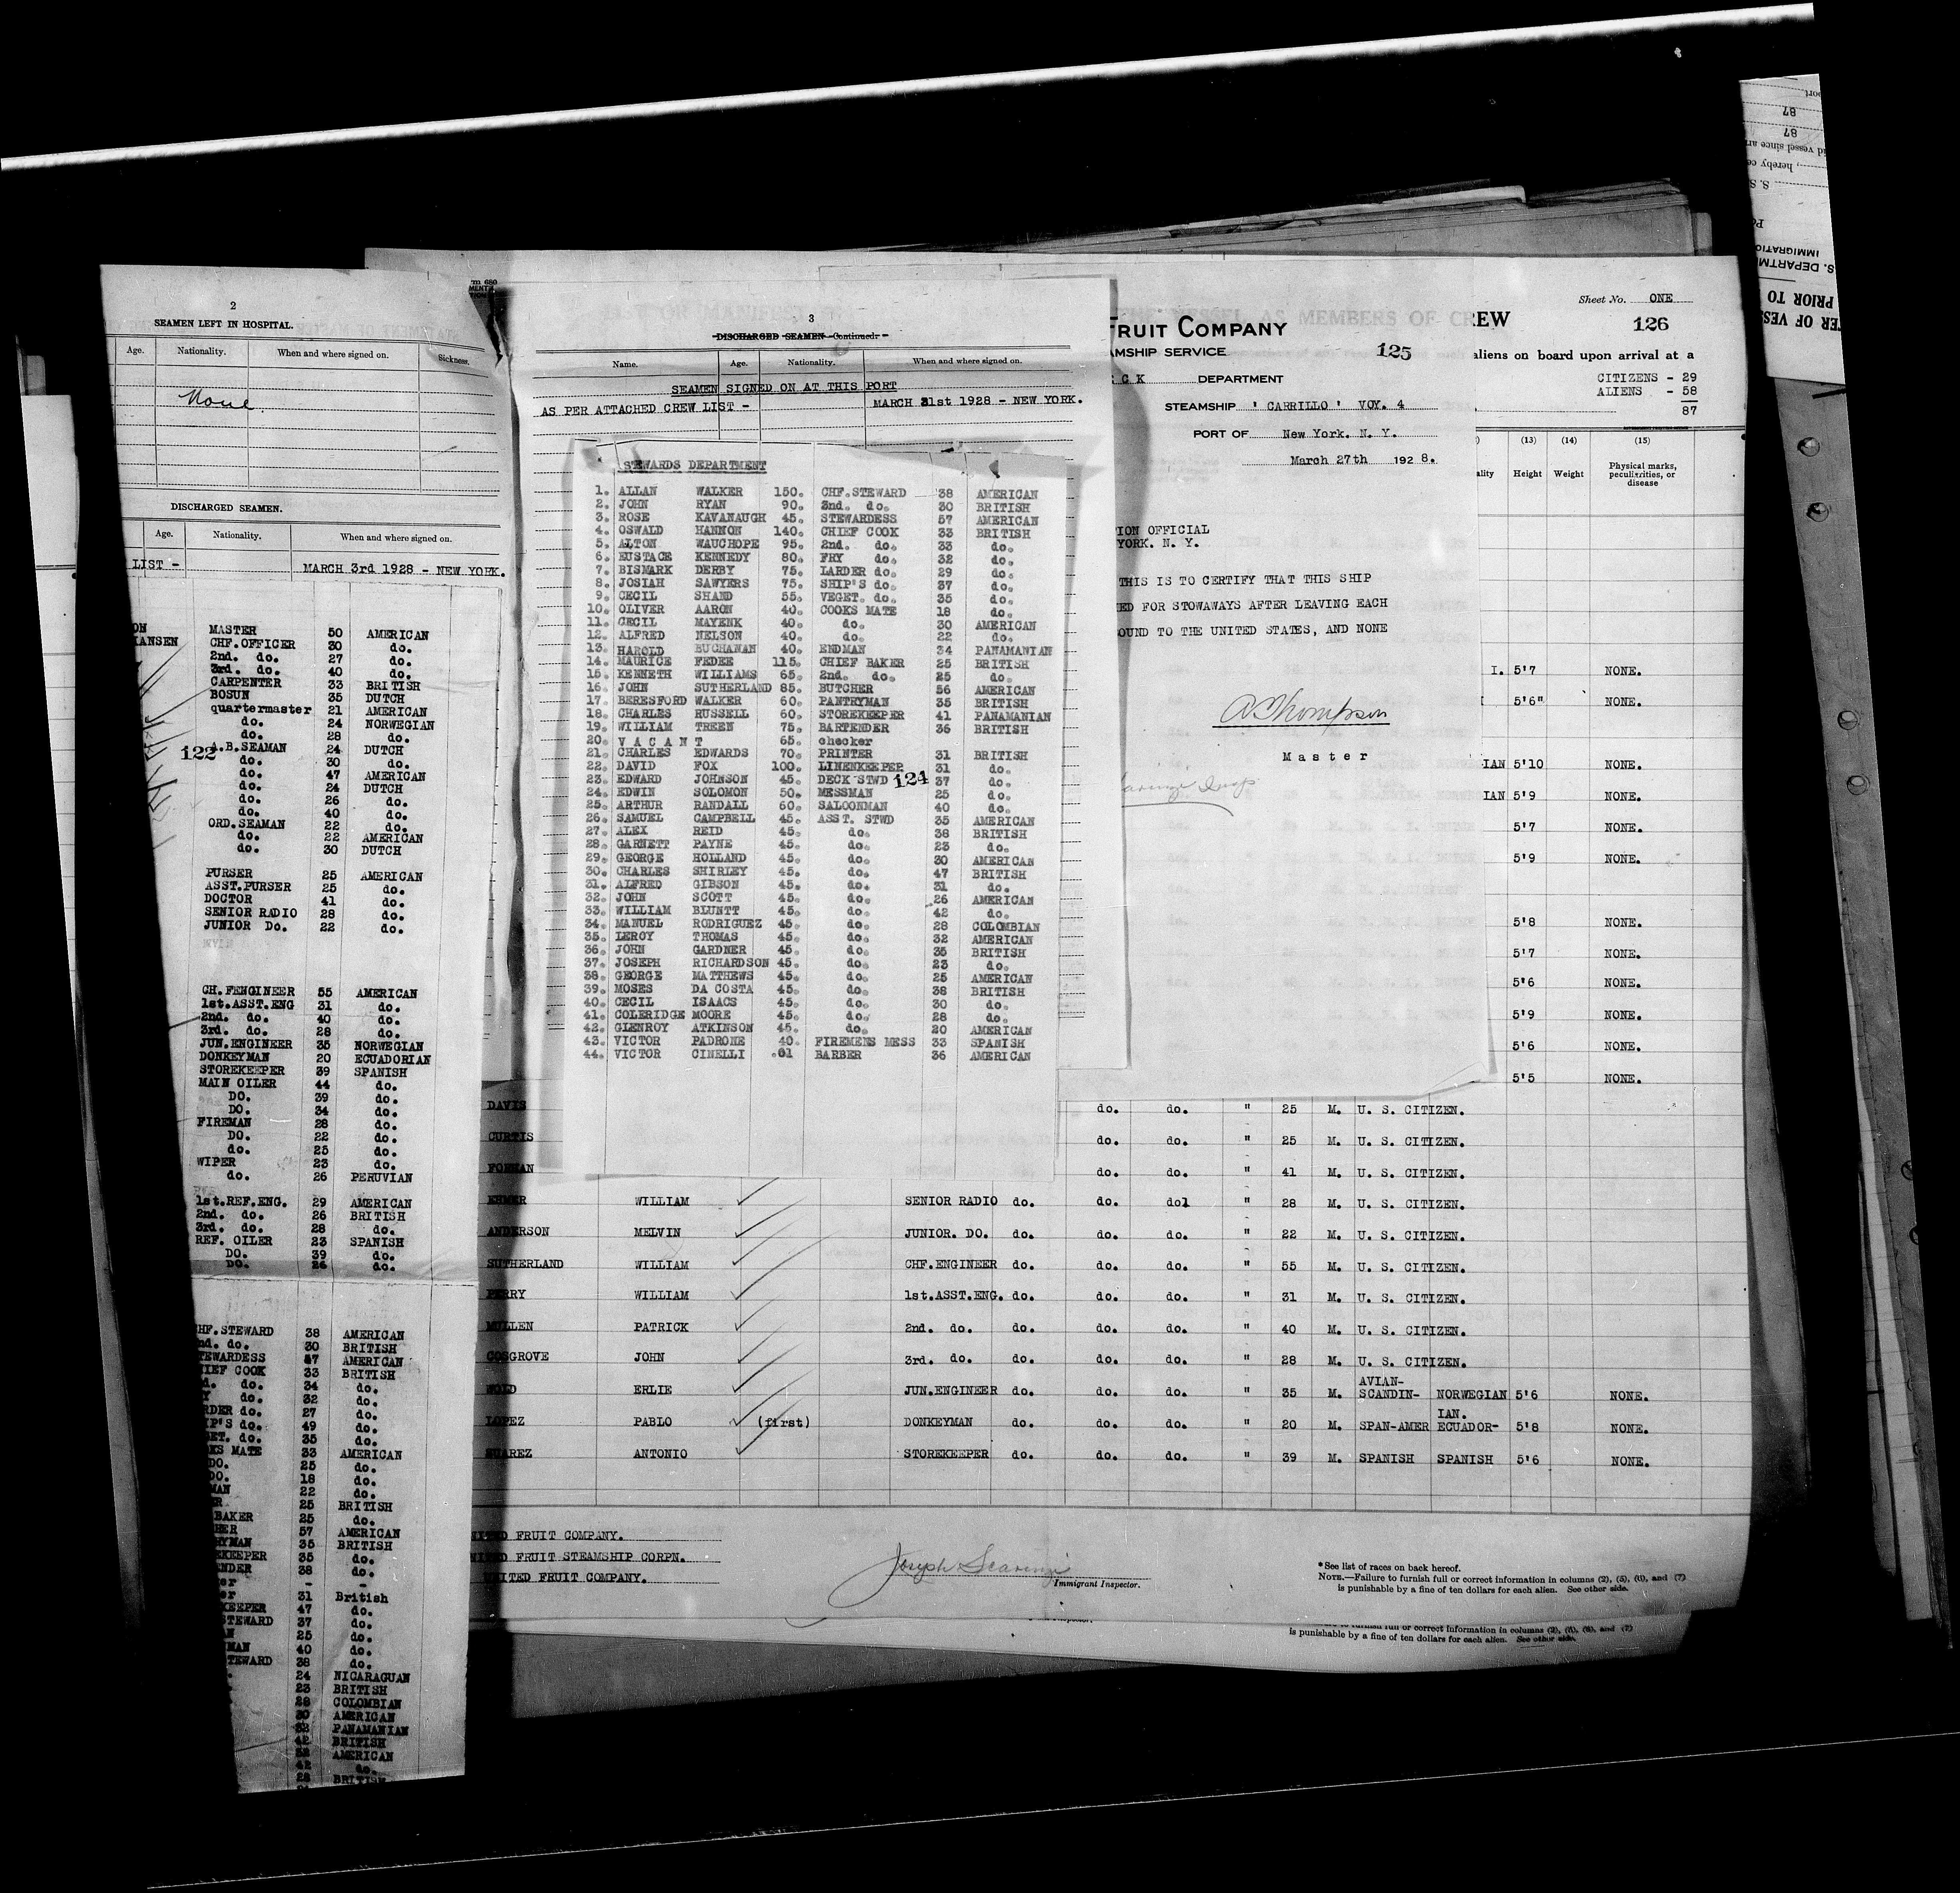 2
SEAMEN LEFT IN HOSPITAL.
Age. Nationality. When and where signed on. Sickness.
None
DISCHARGED SEAMEN.
Age. Nationality. When and where signed on.
LIST - MARCH 3rd 1928 - NEW YORK.
MASTER 50 AMERICAN
CHF.OFFICER 30 do.
2nd. do. 27 do.
3rd. do. 40 do.
CARPENTER 33 BRITISH
BOSUN 35 DUTCH
quartermaster 21 AMERICAN
do. 24 NORWEGIAN
do. 28 do.
122
A.B.SEAMAN 24 DUTCH
do. 30 do.
do. 47 AMERICAN
do. 24 DUTCH
do. 26 do.
do. 40 do.
ORD.SEAMAN 22 do.
do. 22 AMERICAN
do. 30 DUTCH
PURSER 25 AMERICAN
ASST.PURSER 25 do.
DOCTOR 41 do.
SENIOR RADIO 28 do.
JUNIOR Do. 22 do.
CH.FENGINEER 55 AMERICAN
1st.ASST.ENG 31 do.
2nd. do. 40 do.
3rd. do. 28 do.
JUN.ENGINEER 35 NORWEGIAN
DONKEYMAN 20 ECUADORIAN
STOREKEEPER 39 SPANISH
MAIN OILER 44 do.
DO. 39 do.
DO. 34 do.
FIREMAN 28 do.
DO. 22 do.
do. 25 do.
WIPER 23 do.
do. 26 PERUVIAN
1st.REF.ENG. 29 AMERICAN
2nd. do. 26 BRITISH
3rd. do. 28 do.
REF. OILER 23 SPANISH
DO. 39 do.
DO. 26 do.
HF.STEWARD 38 AMERICAN
nd. do. 30 BRITISH
TEWARDESS 57 AMERICAN
IEF COOK 33 BRITISH
d. do. 34 do.
Y do. 32 do.
RDER do. 27 do.
IP'S do. 49 do.
ET. do. 35 do.
KS MATE 33 AMERICAN
DO. 25 do.
DO. 18 do.
MAN 22 do.
R 25 BRITISH
BAKER 25 do.
HER 57 AMERICAN
RYMAN 35 BRITISH
EKEEPER 35 do.
ENDER 38 do.
er - -
er 31 British
KEEPER 47 do.
STEWARD 37 do.
N 25 do.
MAN 40 do.
TEWARD 38 do.
24 NICARAGUAN
23 BRITISH
28 COLOMBIAN
30 AMERICAN
32 PANAMANIAN
42 BRITISH
32 AMERICAN
42 do.
28 BRITISH
3
DISCHARGED SEAMEN-Continued:-
Name. Age. Nationality. When and where signed on.
SEAMEN SIGNED ON AT THIS PORT
AS PER ATTACHED CREW LIST - MARCH 31st 1928 - NEW YORK.
STEWARDS DEPARTMENT
1. ALLAN WALKER 150. CHF.STEWARD 38 AMERICAN
2. JOHN RYAN 90. 2nd. do. 30 BRITISH
3. ROSE KAVANAUGH 45. STEWARDESS 57 AMERICAN
4. OSWALD HANNON 140. CHIEF COOK 33 BRITISH
5. ALTON WAUCHOPE 95. 2nd. do. 33 do.
6. EUSTACE KENNEDY 80. FRY do. 32 do.
7. BISMARK DERBY 75. LARDER do. 29 do.
8. JOSIAH SAWYERS 75. SHIP'S do. 37 do.
9. CECIL SHAND 55. VEGET. do. 35 do.
10. OLIVER AARON 40. COOKS MATE 18 do.
11. CECIL MAYENK 40. do. 30 AMERICAN
12. ALFRED NELSON 40. do. 22 do.
13. HAROLD BUCHANAN 40. ENDMAN 34 PANAMANIAN
14. MAURICE FEDEE 115. CHIEF BAKER 25 BRITISH
15. KENNETH WILLIAMS 65. 2nd. do. 25 do.
16. JOHN SUTHERLAND 85. BUTCHER 56 AMERICAN
17. BERESFORD WALKER 60. PANTRYMAN 35 BRITISH
18. CHARLES RUSSELL 60. STOREKEEPER 41 PANAMANIAN
19. WILLIAM TREEN 75. BARTENDER 36 BRITISH
20. V A C A N T 65. checker
21. CHARLES EDWARDS 70. PRINTER 31 BRITISH
22. DAVID FOX 100. LINENKEEPER 31 do.
23. EDWARD JOHNSON 45. DECK STWD 37 do.
124
24. EDWIN SOLOMON 50. MESSMAN 25 do.
25. ARTHUR RANDALL 60. SALOONMAN 40 do.
26. SAMUEL CAMPBELL 45. ASST. STWD 35 AMERICAN
27. ALEX REID 45. do. 38 BRITISH
28. GARNETT PAYNE 45. do. 23 do.
29. GEORGE HOLLAND 45. do. 30 AMERICAN
30. CHARLES SHIRLEY 45. do. 47 BRITISH
31. ALFRED GIBSON 45. do. 31 do.
32. JOHN SCOTT 45. do. 26 AMERICAN
33. WILLIAM BLUNTT 45. do. 42 do.
34. MANUEL RODRIGUEZ 45. do. 28 COLOMBIAN
35. LEROY THOMAS 45. do. 32 AMERICAN
36. JOHN GARDNER 45. do. 35 BRITISH
37. JOSEPH RICHARDSON 45. do. 23 do.
38. GEORGE MATTHEWS 45. do. 25 AMERICAN
39. MOSES DA COSTA 45. do. 38 BRITISH
40. CECIL ISAACS 45. do. 30 do.
41. COLERIDGE MOORE 45. do. 28 do.
42. GLENROY ATKINSON 45. do. 20 AMERICAN
43. VICTOR PADRONE 40. FIREMENS MESS 33 SPANISH
44. VICTOR CINELLI .01 BARBER 36 AMERICAN
FRUIT COMPANY
AMSHIP SERVICE
125
C K DEPARTMENT
STEAMSHIP ' CARRILLO ' VOY. 4
PORT OF New York. N. Y.
March 27th 1928.
ION OFFICIAL
YORK. N. Y.
THIS IS TO CERTIFY THAT THIS SHIP
ED FOR STOWAWAYS AFTER LEAVING EACH
OUND TO THE UNITED STATES, AND NONE
A Thompson
Master
Sheet No. ONE
REW
126
aliens on board upon arrival at a
CITIZENS - 29
ALIENS - 58
87
(13) (14) (15)
ality Height Weight Physical marks, peculiarities, or disease
I. 5'7 NONE.
5'6" NONE.
IAN 5'10 NONE.
IAN 5'9 NONE.
5'7 NONE.
5'9 NONE.
5'8 NONE.
5'7 NONE.
5'6 NONE.
5'9 NONE.
5'6 NONE.
5'5 NONE.
DAVIS do. do. " 25 M. U. S. CITIZEN.
CURTIS do. do. " 25 M. U. S. CITIZEN.
FOREMAN do. do. " 41 M. U. S. CITIZEN.
WILLIAM SENIOR RADIO do. do. dol " 28 M. U. S. CITIZEN.
ANDERSON MELVIN JUNIOR. DO. do. do. do. " 22 M. U. S. CITIZEN.
SUTHERLAND WILLIAM CHF.ENGINEER do. do. do. " 55 M. U. S. CITIZEN.
PERRY WILLIAM 1st.ASST.ENG. do. do. do. " 31 M. U. S. CITIZEN.
MULLEN PATRICK 2nd. do. do. do. do. " 40 M. U. S. CITIZEN.
COSGROVE JOHN 3rd. do. do. do. do. " 28 M. U. S. CITIZEN.
WOLD ERLIE JUN.ENGINEER do. do. do. " 35 M. AVIAN- SCANDIN- NORWEGIAN 5'6 NONE.
LOPEZ PABLO (first) DONKEYMAN do. do. do. " 20 M. SPAN-AMER IAN. ECUADOR- 5'8 NONE.
SUAREZ ANTONIO STOREKEEPER do. do. do. " 39 M. SPANISH SPANISH 5'6 NONE.
NITED FRUIT COMPANY.
NITED FRUIT STEAMSHIP CORPN.
UNITED FRUIT COMPANY.
Joseph Scarenzi
Immigrant Inspector.
*See list of races on back hereof.
NOTE.—Failure to furnish full or correct information in columns (2), (5), (6), and (7)
is punishable by a fine of ten dollars for each alien. See other side.
to furnish full or correct information in columns (2), (5), (6), and (7)
is punishable by a fine of ten dollars for each alien. See other side.
87
87
hereby ce
S. S.
IMMIGRATIO
S. DEPARTM
PRIOR TO
TER OF VESS